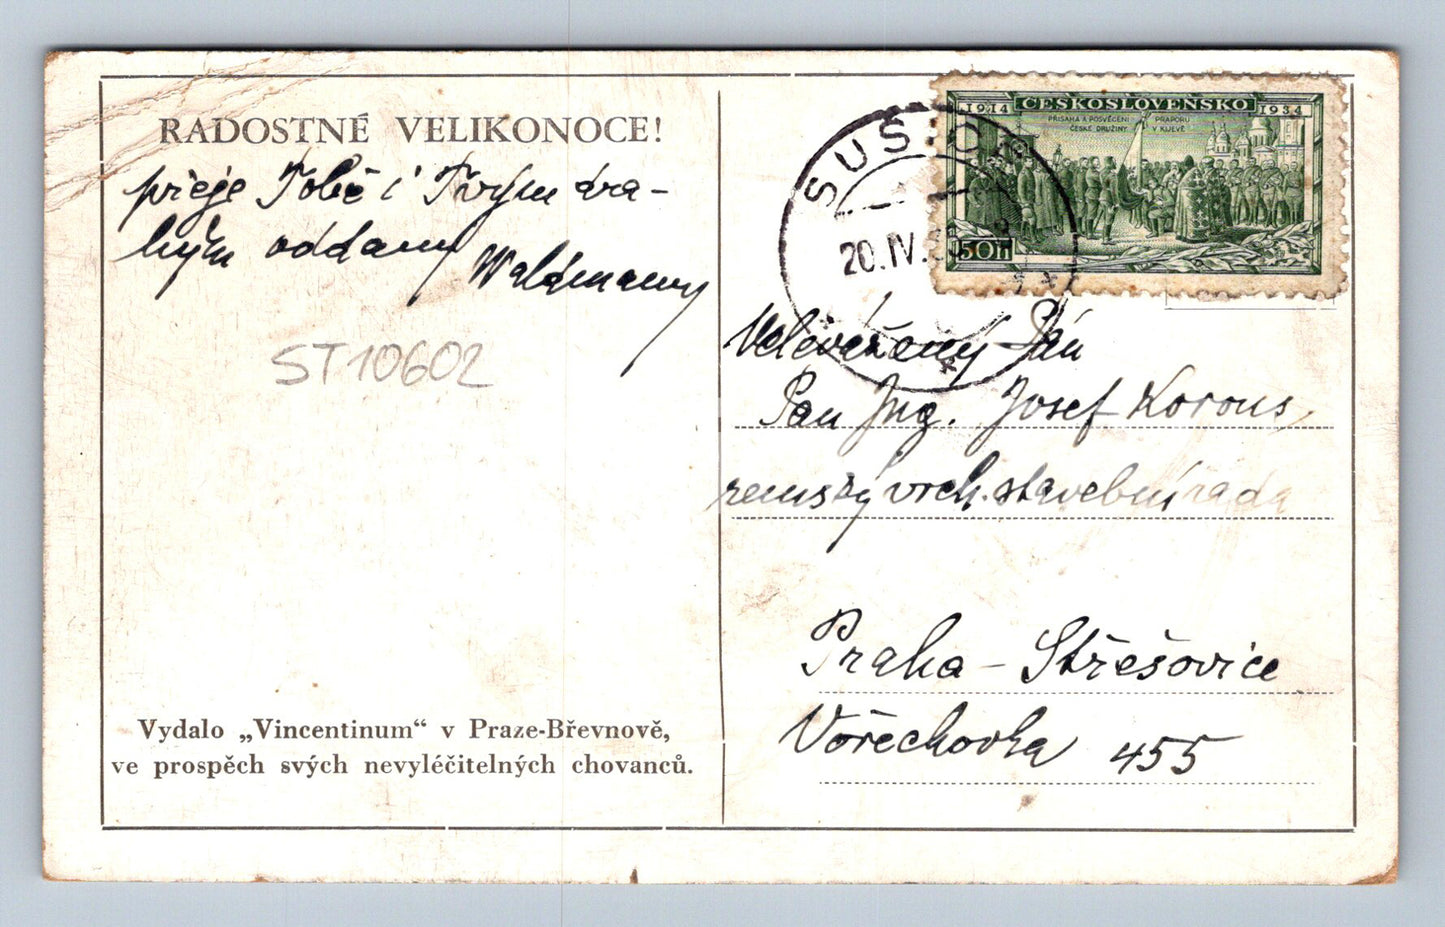 RADOSTNÉ VELIKONOCE!
přeje Tobě i Tvým dra-
hým oddaný
Waldmanny
ST10602
Vydalo „Vincentinum“ v Praze-Břevnově,
ve prospěch svých nevyléčitelných chovanců.
1914 ČESKOSLOVENSKO 1934
PŘÍSAHA A POSVĚCENÍ PRAPORU
ČESKÉ DRUŽINY V KIJEVĚ
50h
SUŠICE
20.IV.
Velevážený Pán
Pan Ing. Josef Korous
zemský vrch. stavební rada
Praha - Střešovice
Vořechovka 455